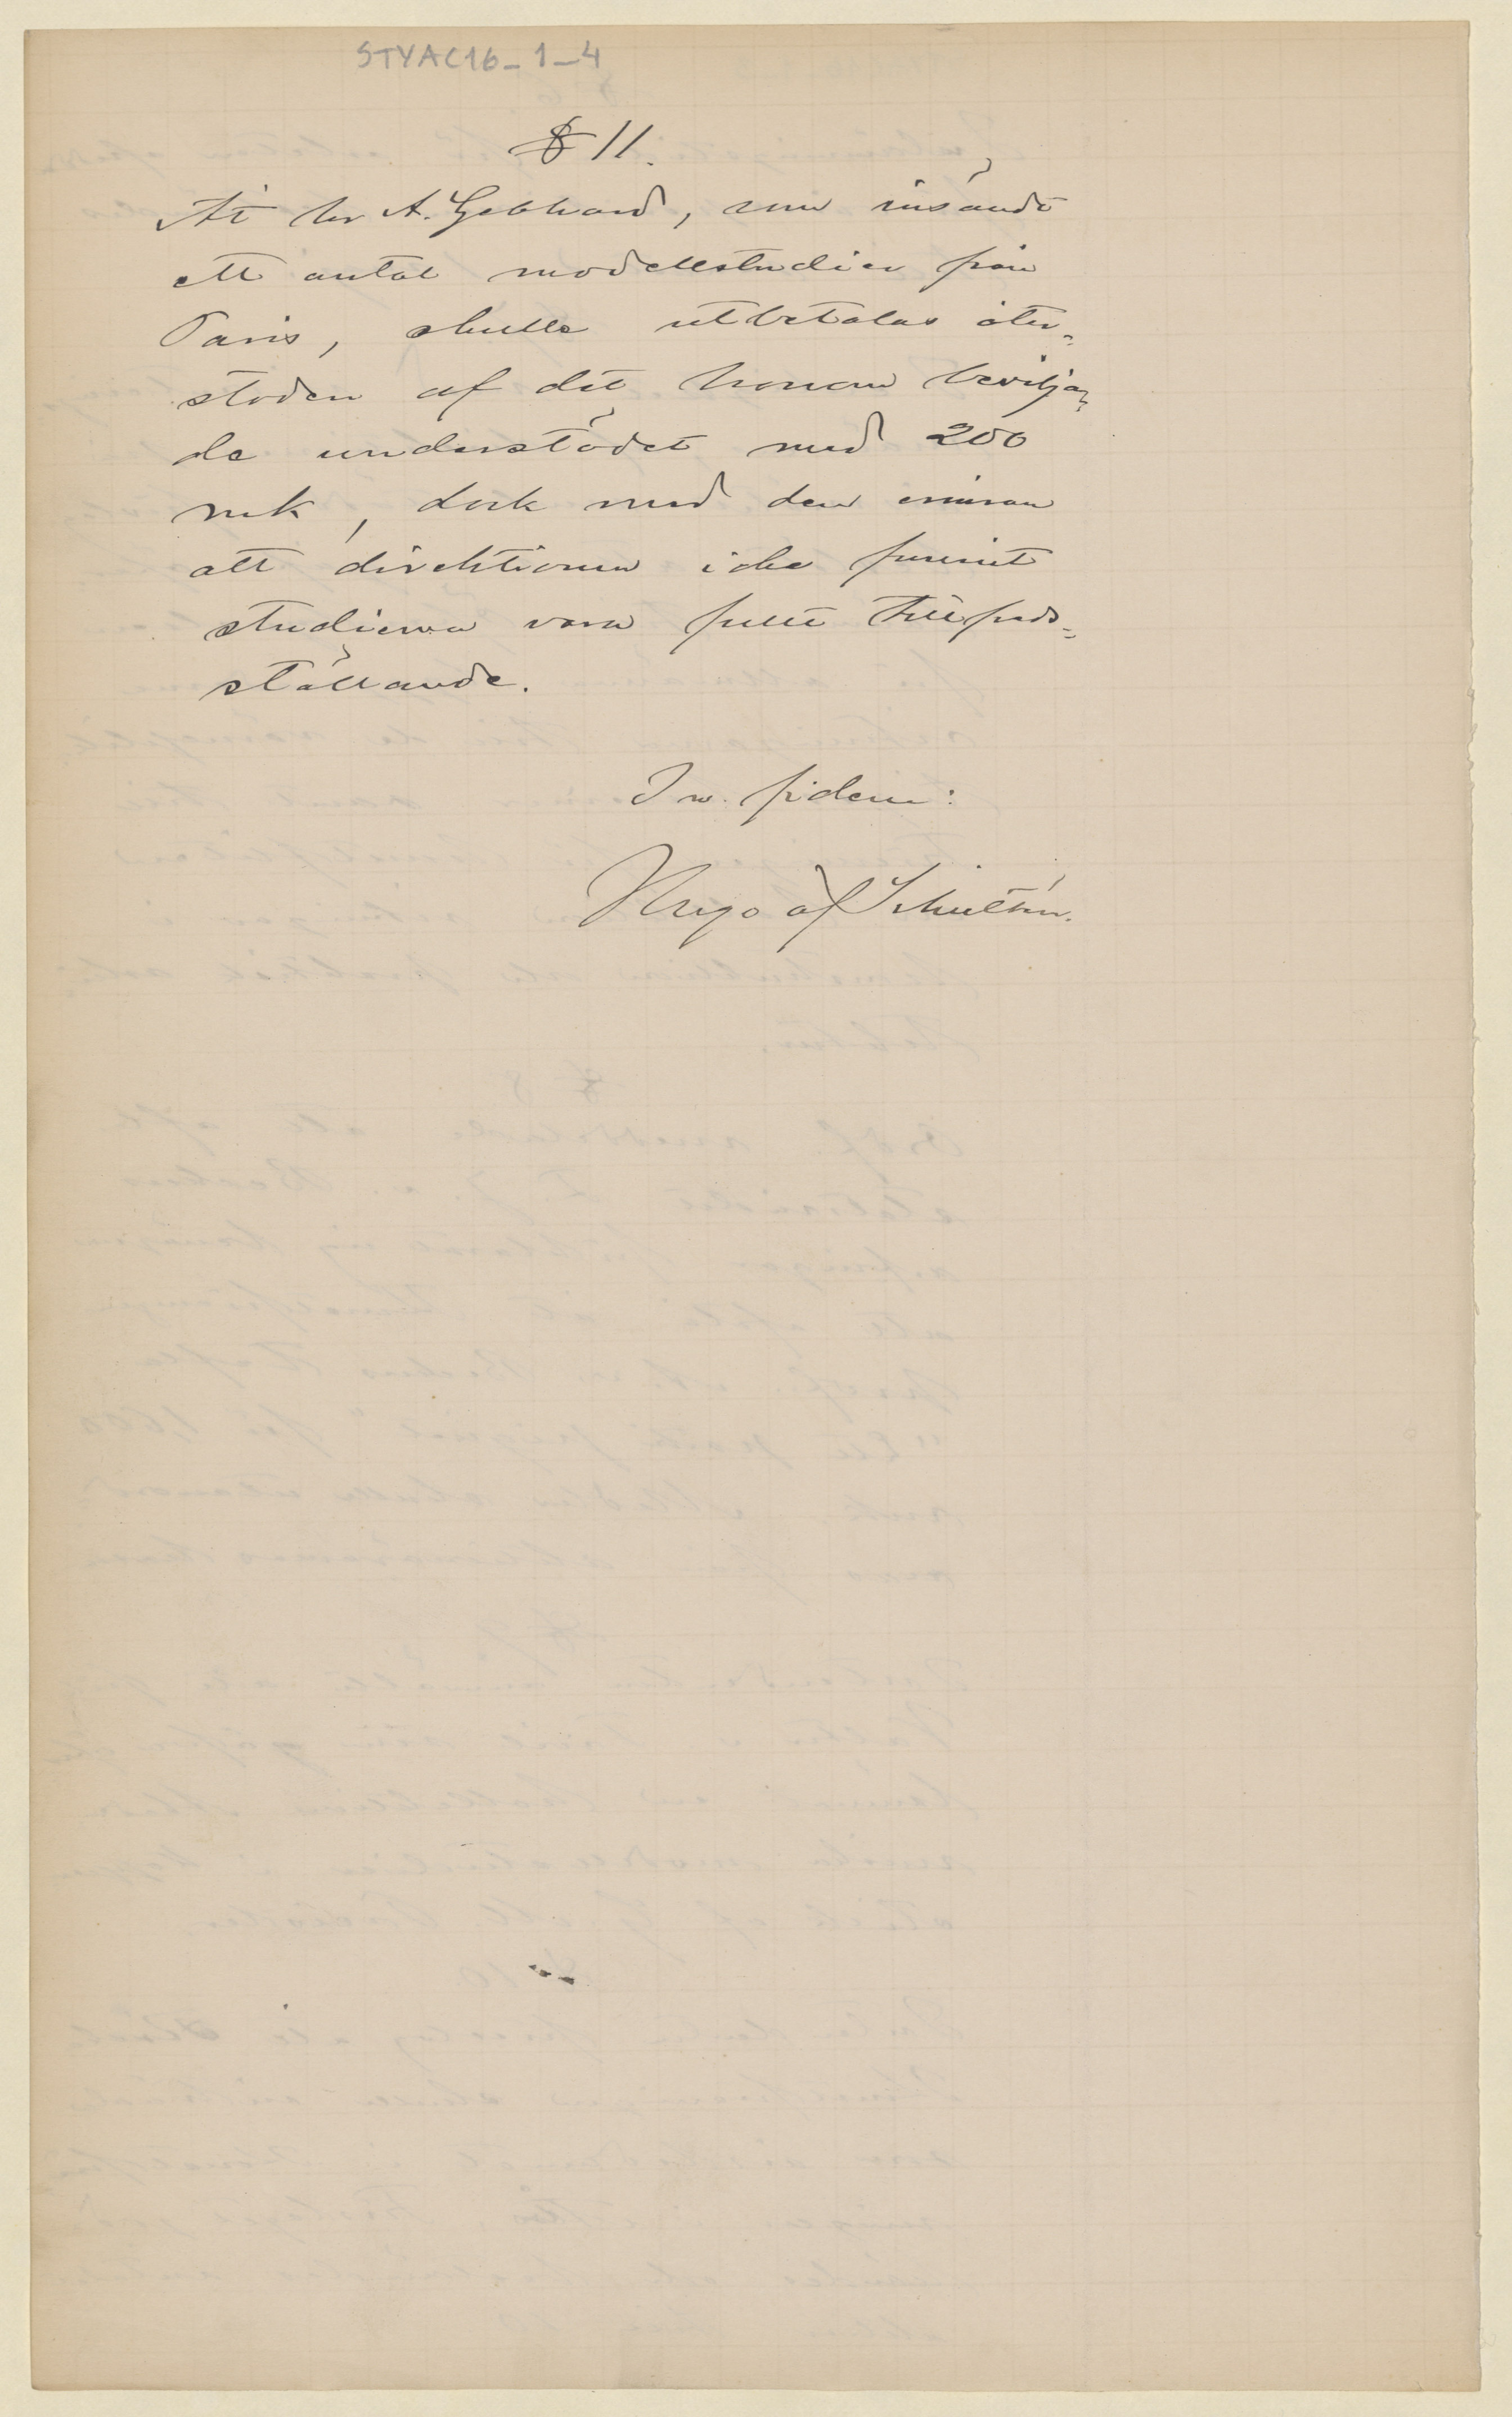 STYAC16_1_4
§ 11.
Åt hr A. Gebhard, som insändt
ett antal modellstudier från
Paris, skulle utbetalas åter-
stoden af det honom bevilja-
de understödet med 200
mk, dock med den erinran
att direktionen icke funnit
studierna vara fullt tillfreds-
ställande.
In fidem:
Hugo af Schultén.